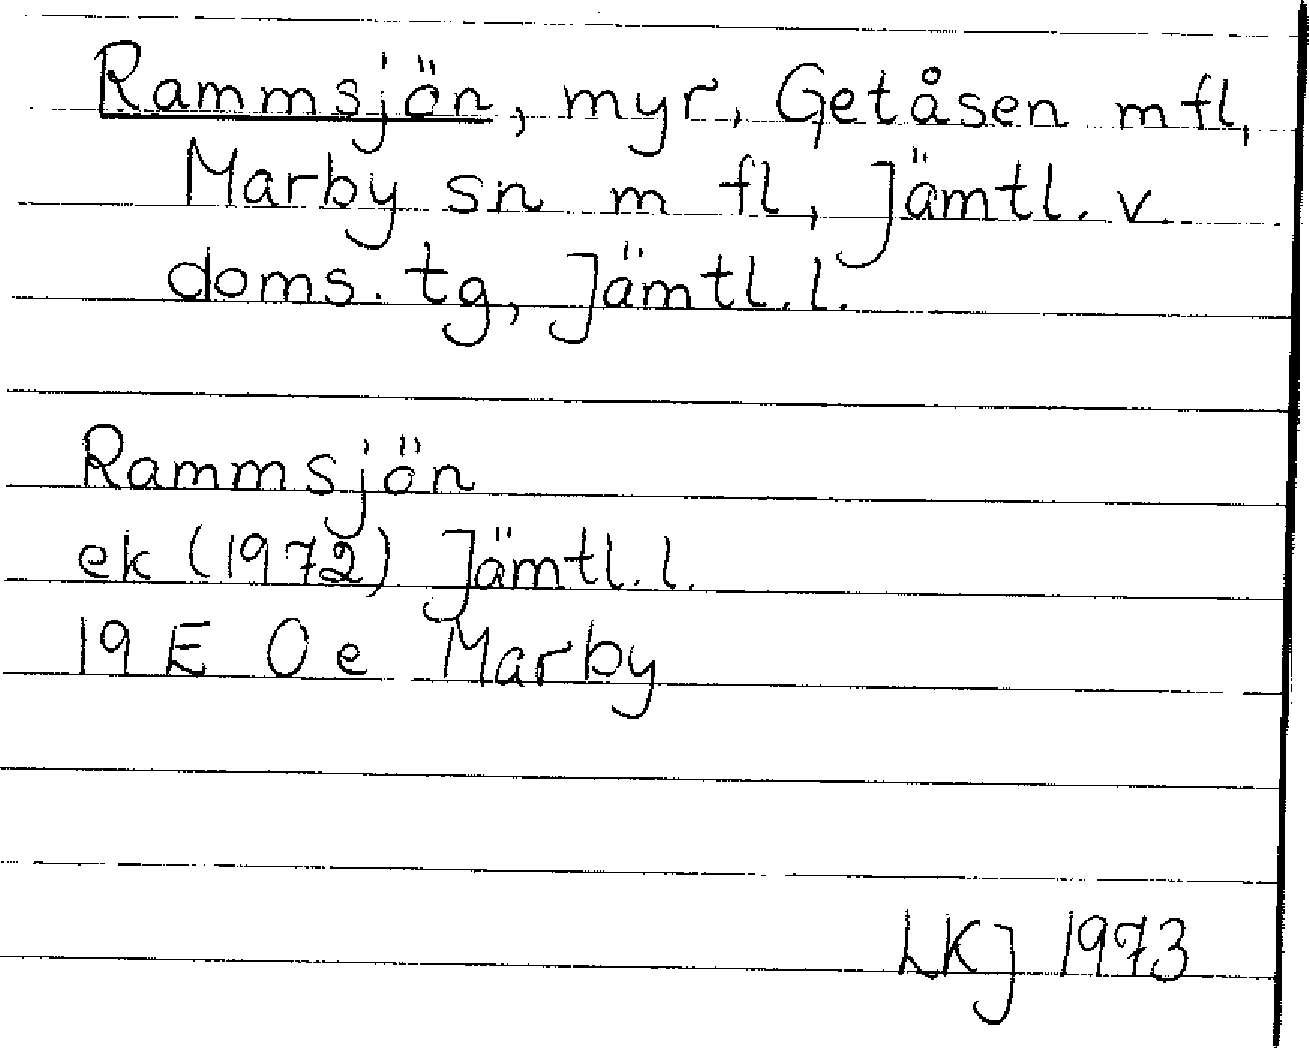 Rammsjön, myr, Getåsen m fl,
Marby sn m fl, Jämtl. v.
doms. tg, Jämtl. l.
Rammsjön
ek (1972) Jämtl. l.
19 E 0 e Marby
LKJ 1973